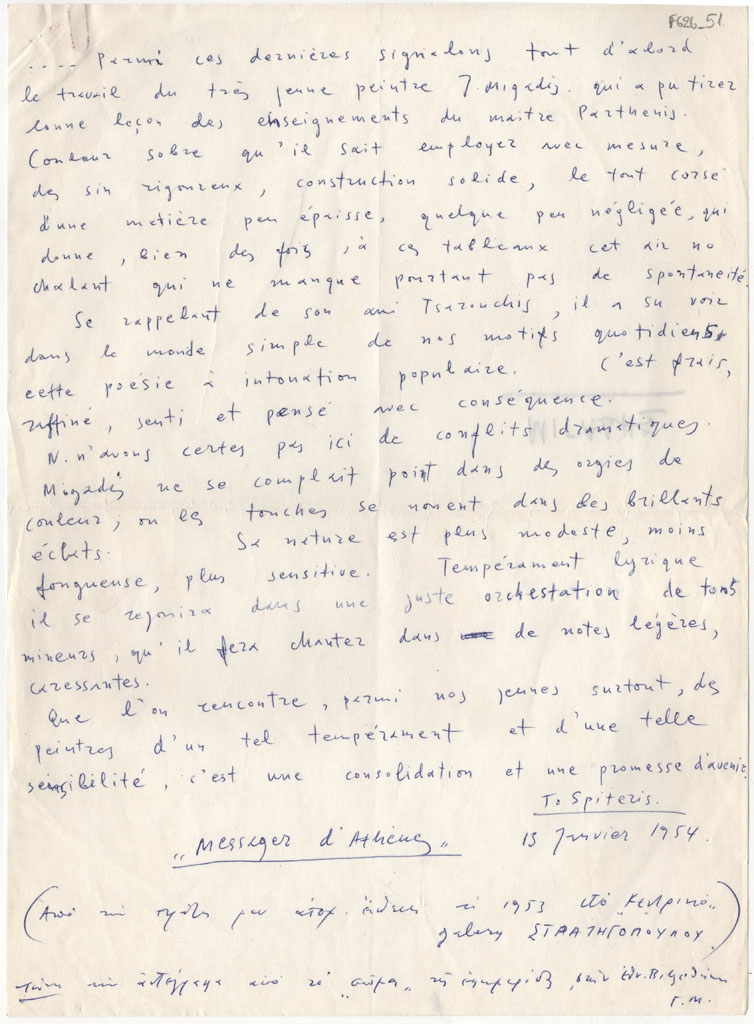 F626_51
.... Parmi ces dernières signalons tout d'abord
le travail du très jeune peintre J. Migadis. qui a pu tirer
bonne leçon des enseignements du maître Parthenis.
Couleur sobre qu'il sait employer avec mesure,
des sin rigoureux, construction solide, le tout corsé
d'une matière peu épaisse, quelque peu négligée, qui
donne, bien des fois, à ces tableaux cet air no
chalant qui ne manque pourtant pas de spontanéité.
Se rappelant de son ami Tsarouchis, il a su voir
dans le monde simple de nos motifs quotidiens,
cette poésie à intonation populaire. C'est frais,
raffiné, senti et pensé avec conséquence.
N. n'avons certes pas ici de conflits dramatiques.
Migadis ne se complait point dans des orgies de
couleur; ou les touches se noient dans des brillants
éclats. Sa nature est plus modeste, moins
fougueuse, plus sensitive. Tempérament lyrique
il se rejouira dans une juste orchestation de tons
mineurs, qu'il fera chanter dans de notes légères,
caressantes.
Que l'on rencontre, parmi nos jeunes surtout, des
peintres d'un tel tempérament et d'une telle
sensibilité, c'est une consolidation et une promesse d'avenir.
To Spiteris.
"Messager d'Athènes" 13 Janvier 1954.
(Από τη πρώτη μου ατομ. έκθεση τὸ 1953 στὸ Κεντρικό..
gallery ΣΤΡΑΤΗΓΟΠΟΥΛΟΥ)
ἀπὸ τὸ "σῶμα" τῆς ἐφημερίδος, στὴν Ἐθν. Βιβλιοθήκη
Γ.Μ.